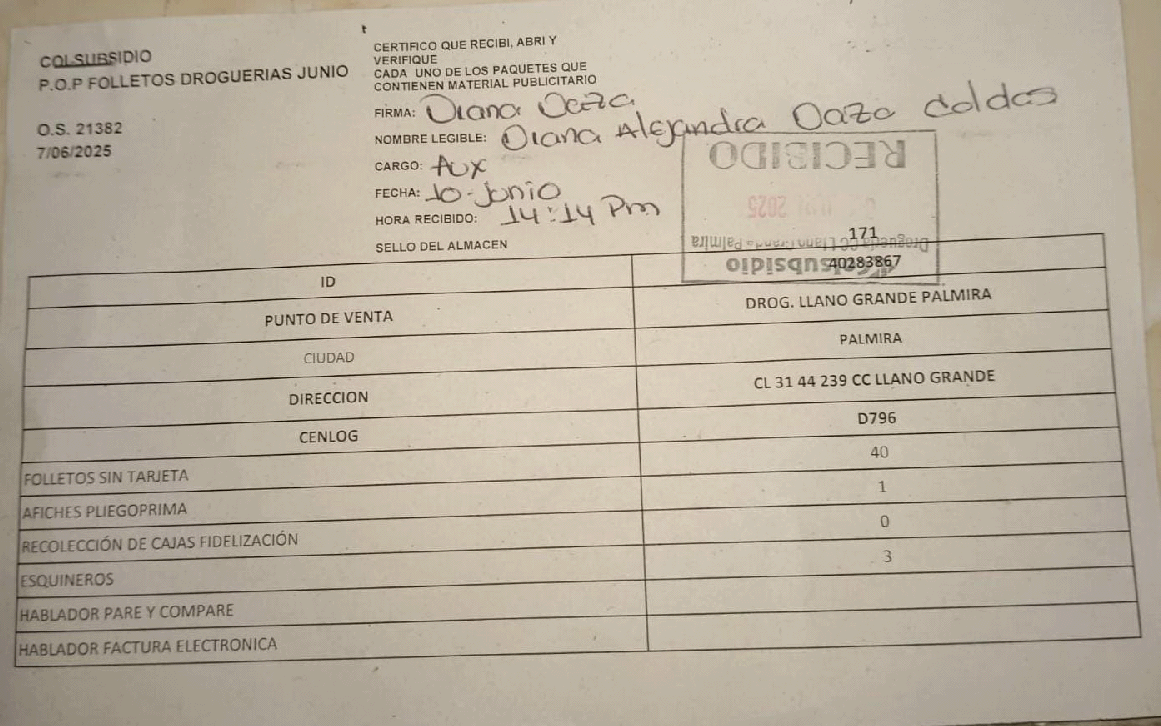 COLSUBSIDIO
P.O.P FOLLETOS DROGUERIAS JUNIO
O.S. 21382
7/06/2025
CERTIFICO QUE RECIBI, ABRI Y
VERIFIQUE
CADA UNO DE LOS PAQUETES QUE
CONTIENEN MATERIAL PUBLICITARIO
FIRMA: Diana Daza
NOMBRE LEGIBLE: Diana Alejandra Daza Caldas
CARGO: Aux
FECHA: 10-Junio
HORA RECIBIDO: 14:14 Pm
SELLO DEL ALMACEN
Colsubsidio
Droguería CC Llano Grande Palmira
2025
RECIBIDO
171
ID 40283867
PUNTO DE VENTA DROG. LLANO GRANDE PALMIRA
CIUDAD PALMIRA
DIRECCION CL 31 44 239 CC LLANO GRANDE
CENLOG D796
FOLLETOS SIN TARJETA 40
AFICHES PLIEGOPRIMA 1
RECOLECCIÓN DE CAJAS FIDELIZACIÓN 0
ESQUINEROS 3
HABLADOR PARE Y COMPARE
HABLADOR FACTURA ELECTRONICA